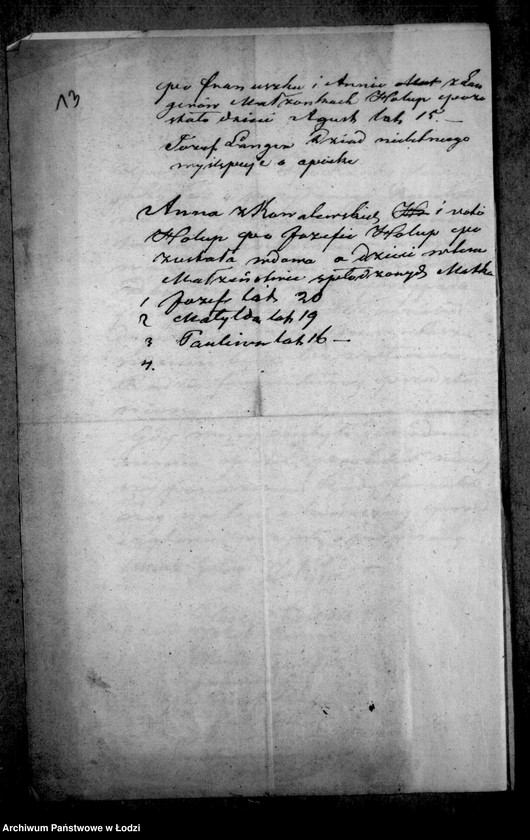 13
po Franciszku i Annie Mat z Lan
genów Małżonkach Holup pozo
stało dzieci Agust lat 15. —
Józef Langer Dziad nieletniego
występuje o opiekę
Anna z Kowalewskich i voto
Holup po Jozefie Holup po
zostala wdowa a dzieci w tem
Małzeństwie spłodzonych Matka
1 Jozef lat 20
2 Matylda lat 19
3 Paulina lat 16 —
4.
Archiwum Państwowe w Łodzi